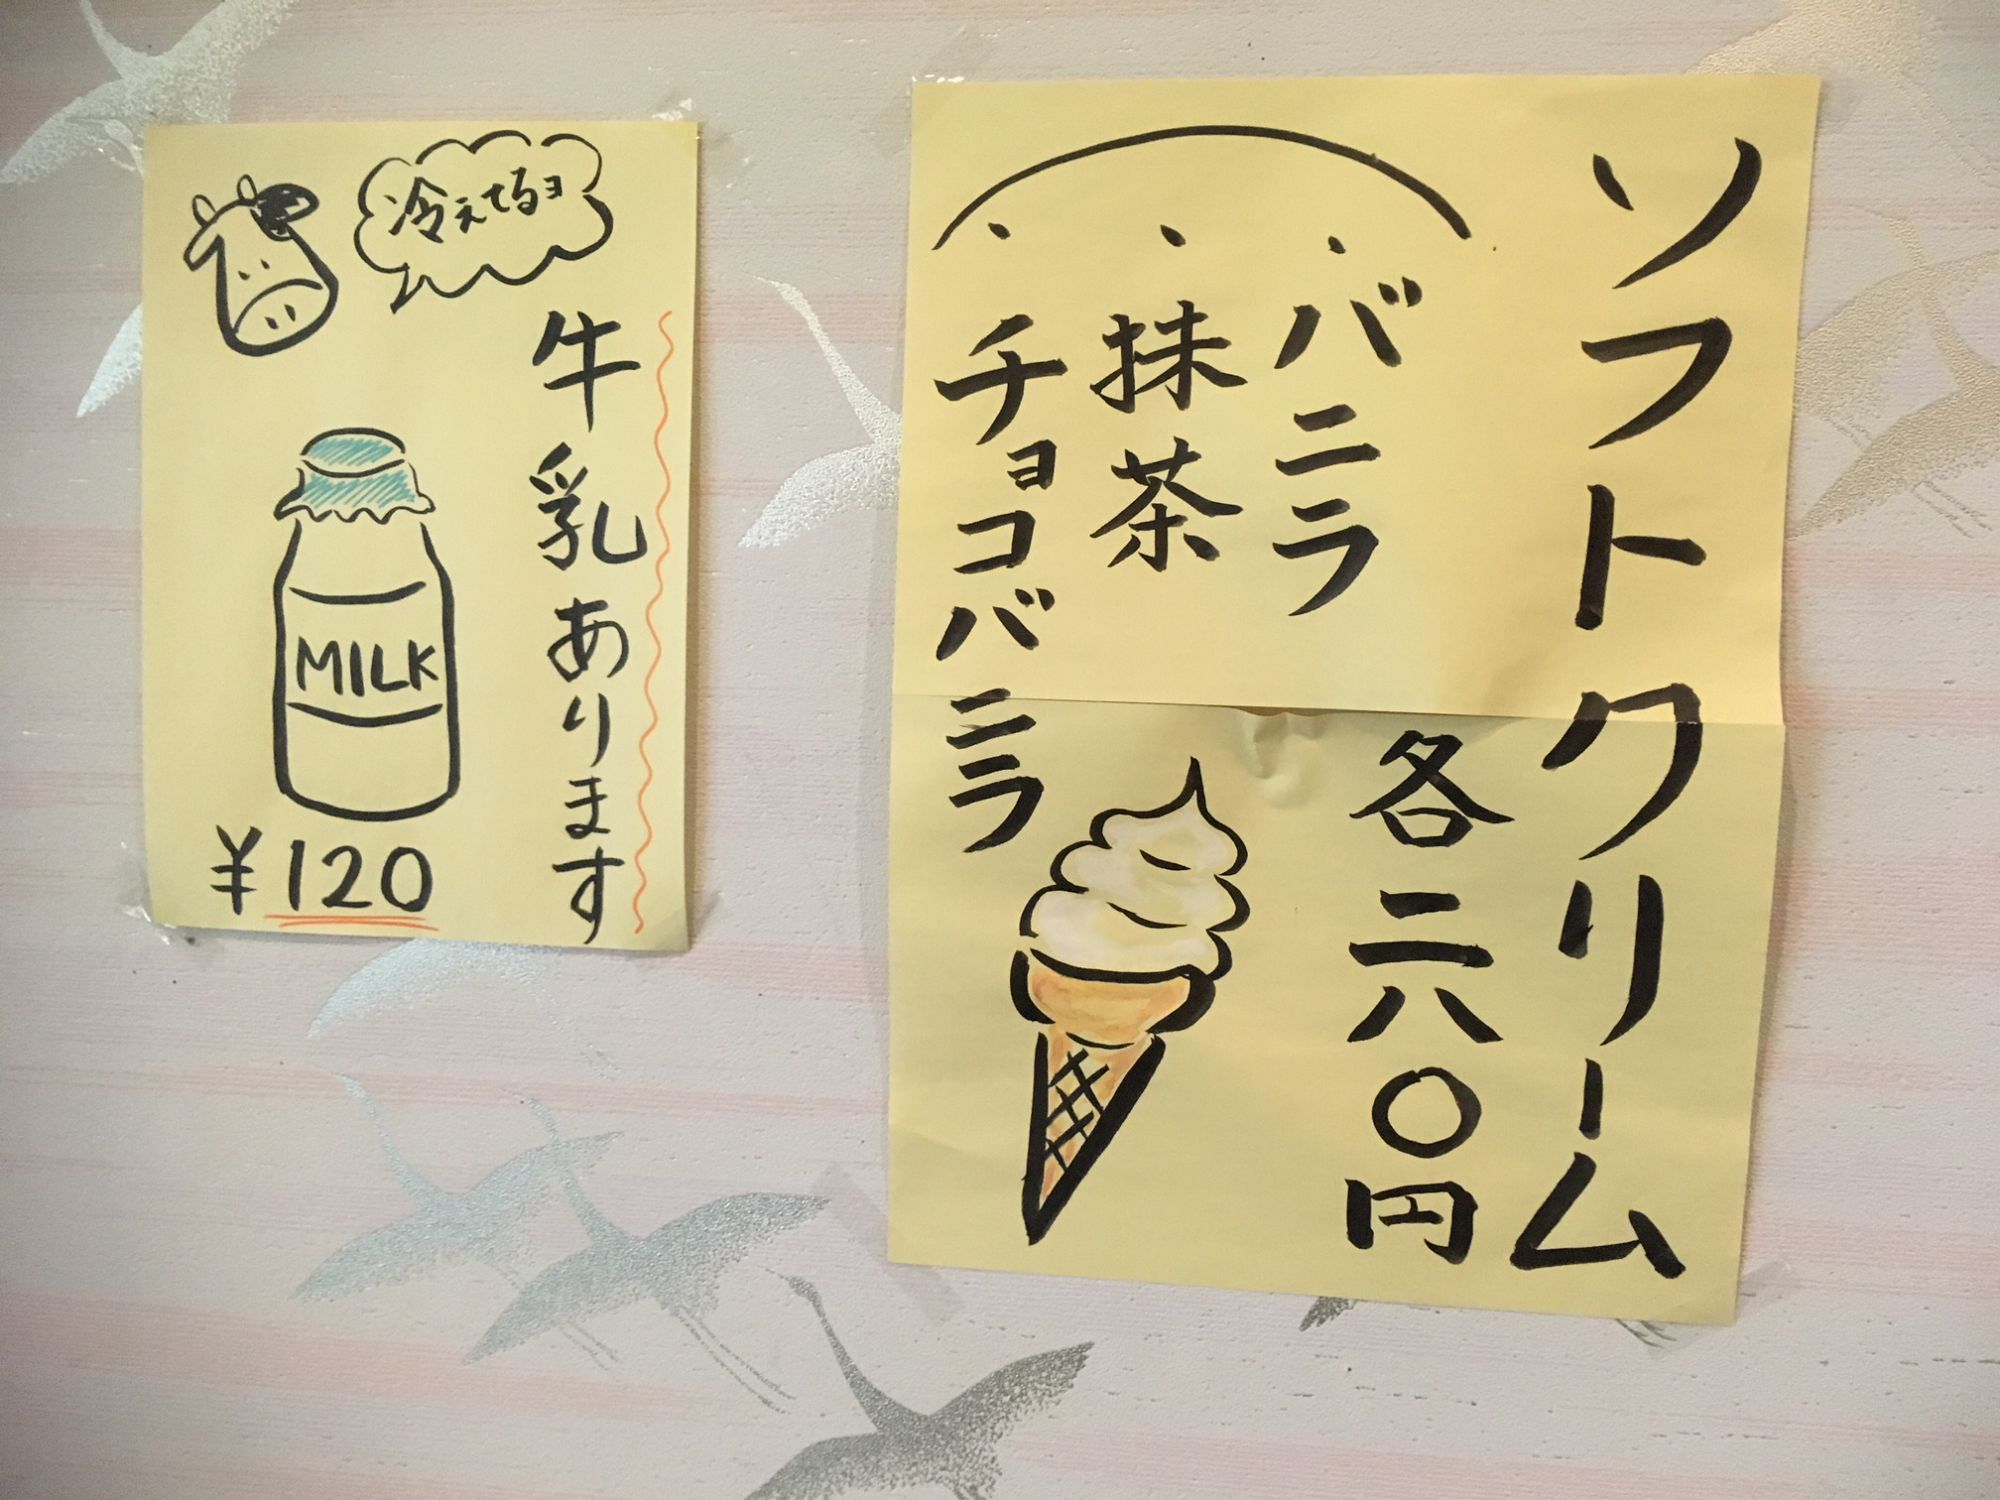 冷えてるョ
牛乳あります
MILK
¥120
ソフトクリーム
・バニラ
・抹茶
・チョコバニラ
各二八〇円